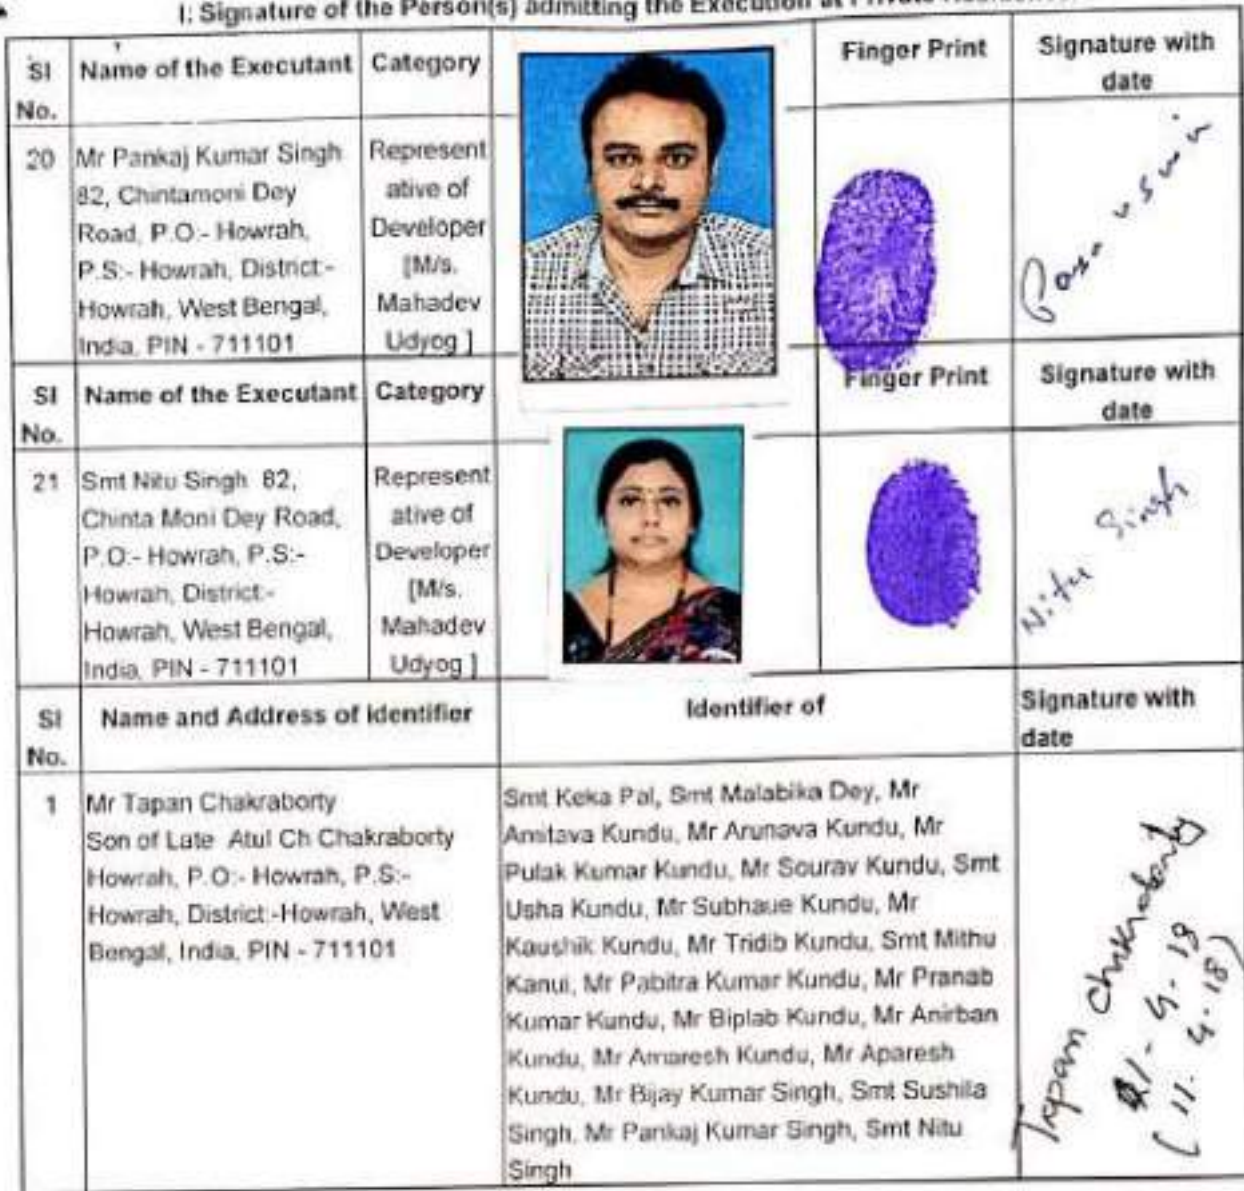 I: Signature of the Person(s) admitting the Execution at Private
Sl No. Name of the Executant Category Finger Print Signature with date
20 Mr Pankaj Kumar Singh
82, Chintamoni Dey
Road, P.O:- Howrah,
P.S:- Howrah, District:-
Howrah, West Bengal,
India, PIN - 711101
Represent
ative of
Developer
[M/s.
Mahadev
Udyog ]
Sl No. Name of the Executant Category Finger Print Signature with date
21 Smt Nitu Singh 82,
Chinta Moni Dey Road,
P.O:- Howrah, P.S:-
Howrah, District:-
Howrah, West Bengal,
India, PIN - 711101
Represent
ative of
Developer
[M/s.
Mahadev
Udyog ]
Nitu Singh
Sl No. Name and Address of identifier Identifier of Signature with date
1 Mr Tapan Chakraborty
Son of Late Atul Ch Chakraborty
Howrah, P.O:- Howrah, P.S:-
Howrah, District:-Howrah, West
Bengal, India, PIN - 711101
Smt Keka Pal, Smt Malabika Dey, Mr
Amitava Kundu, Mr Arunava Kundu, Mr
Pulak Kumar Kundu, Mr Sourav Kundu, Smt
Usha Kundu, Mr Subhaue Kundu, Mr
Kaushik Kundu, Mr Tridib Kundu, Smt Mithu
Kanui, Mr Pabitra Kumar Kundu, Mr Pranab
Kumar Kundu, Mr Biplab Kundu, Mr Anirban
Kundu, Mr Amaresh Kundu, Mr Aparesh
Kundu, Mr Bijay Kumar Singh, Smt Sushila
Singh, Mr Pankaj Kumar Singh, Smt Nitu
Singh
Tapan Chakraborty
(11.4.18)